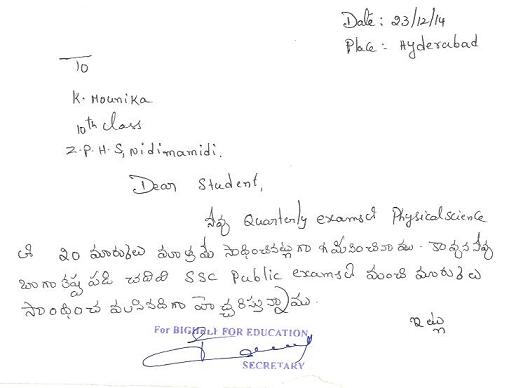 Date: 23/12/14
Place: Hyderabad
To
K. Mounika
10th class
Z.P.H.S, Nidimamidi.
Dear Student,
నీవు Quarterly examsలో Physicalscience
లో 20 మార్కులు మాత్రమే సాధించినట్లుగా గమనించినాము. కావున నీవు
బాగా కష్టపడి చదివి SSC Public examsలో మంచి మార్కులు
సాధించవలసినదిగా హెచ్చరిస్తున్నాము.
ఇట్లు
For BIGHELP FOR EDUCATION
SECRETARY